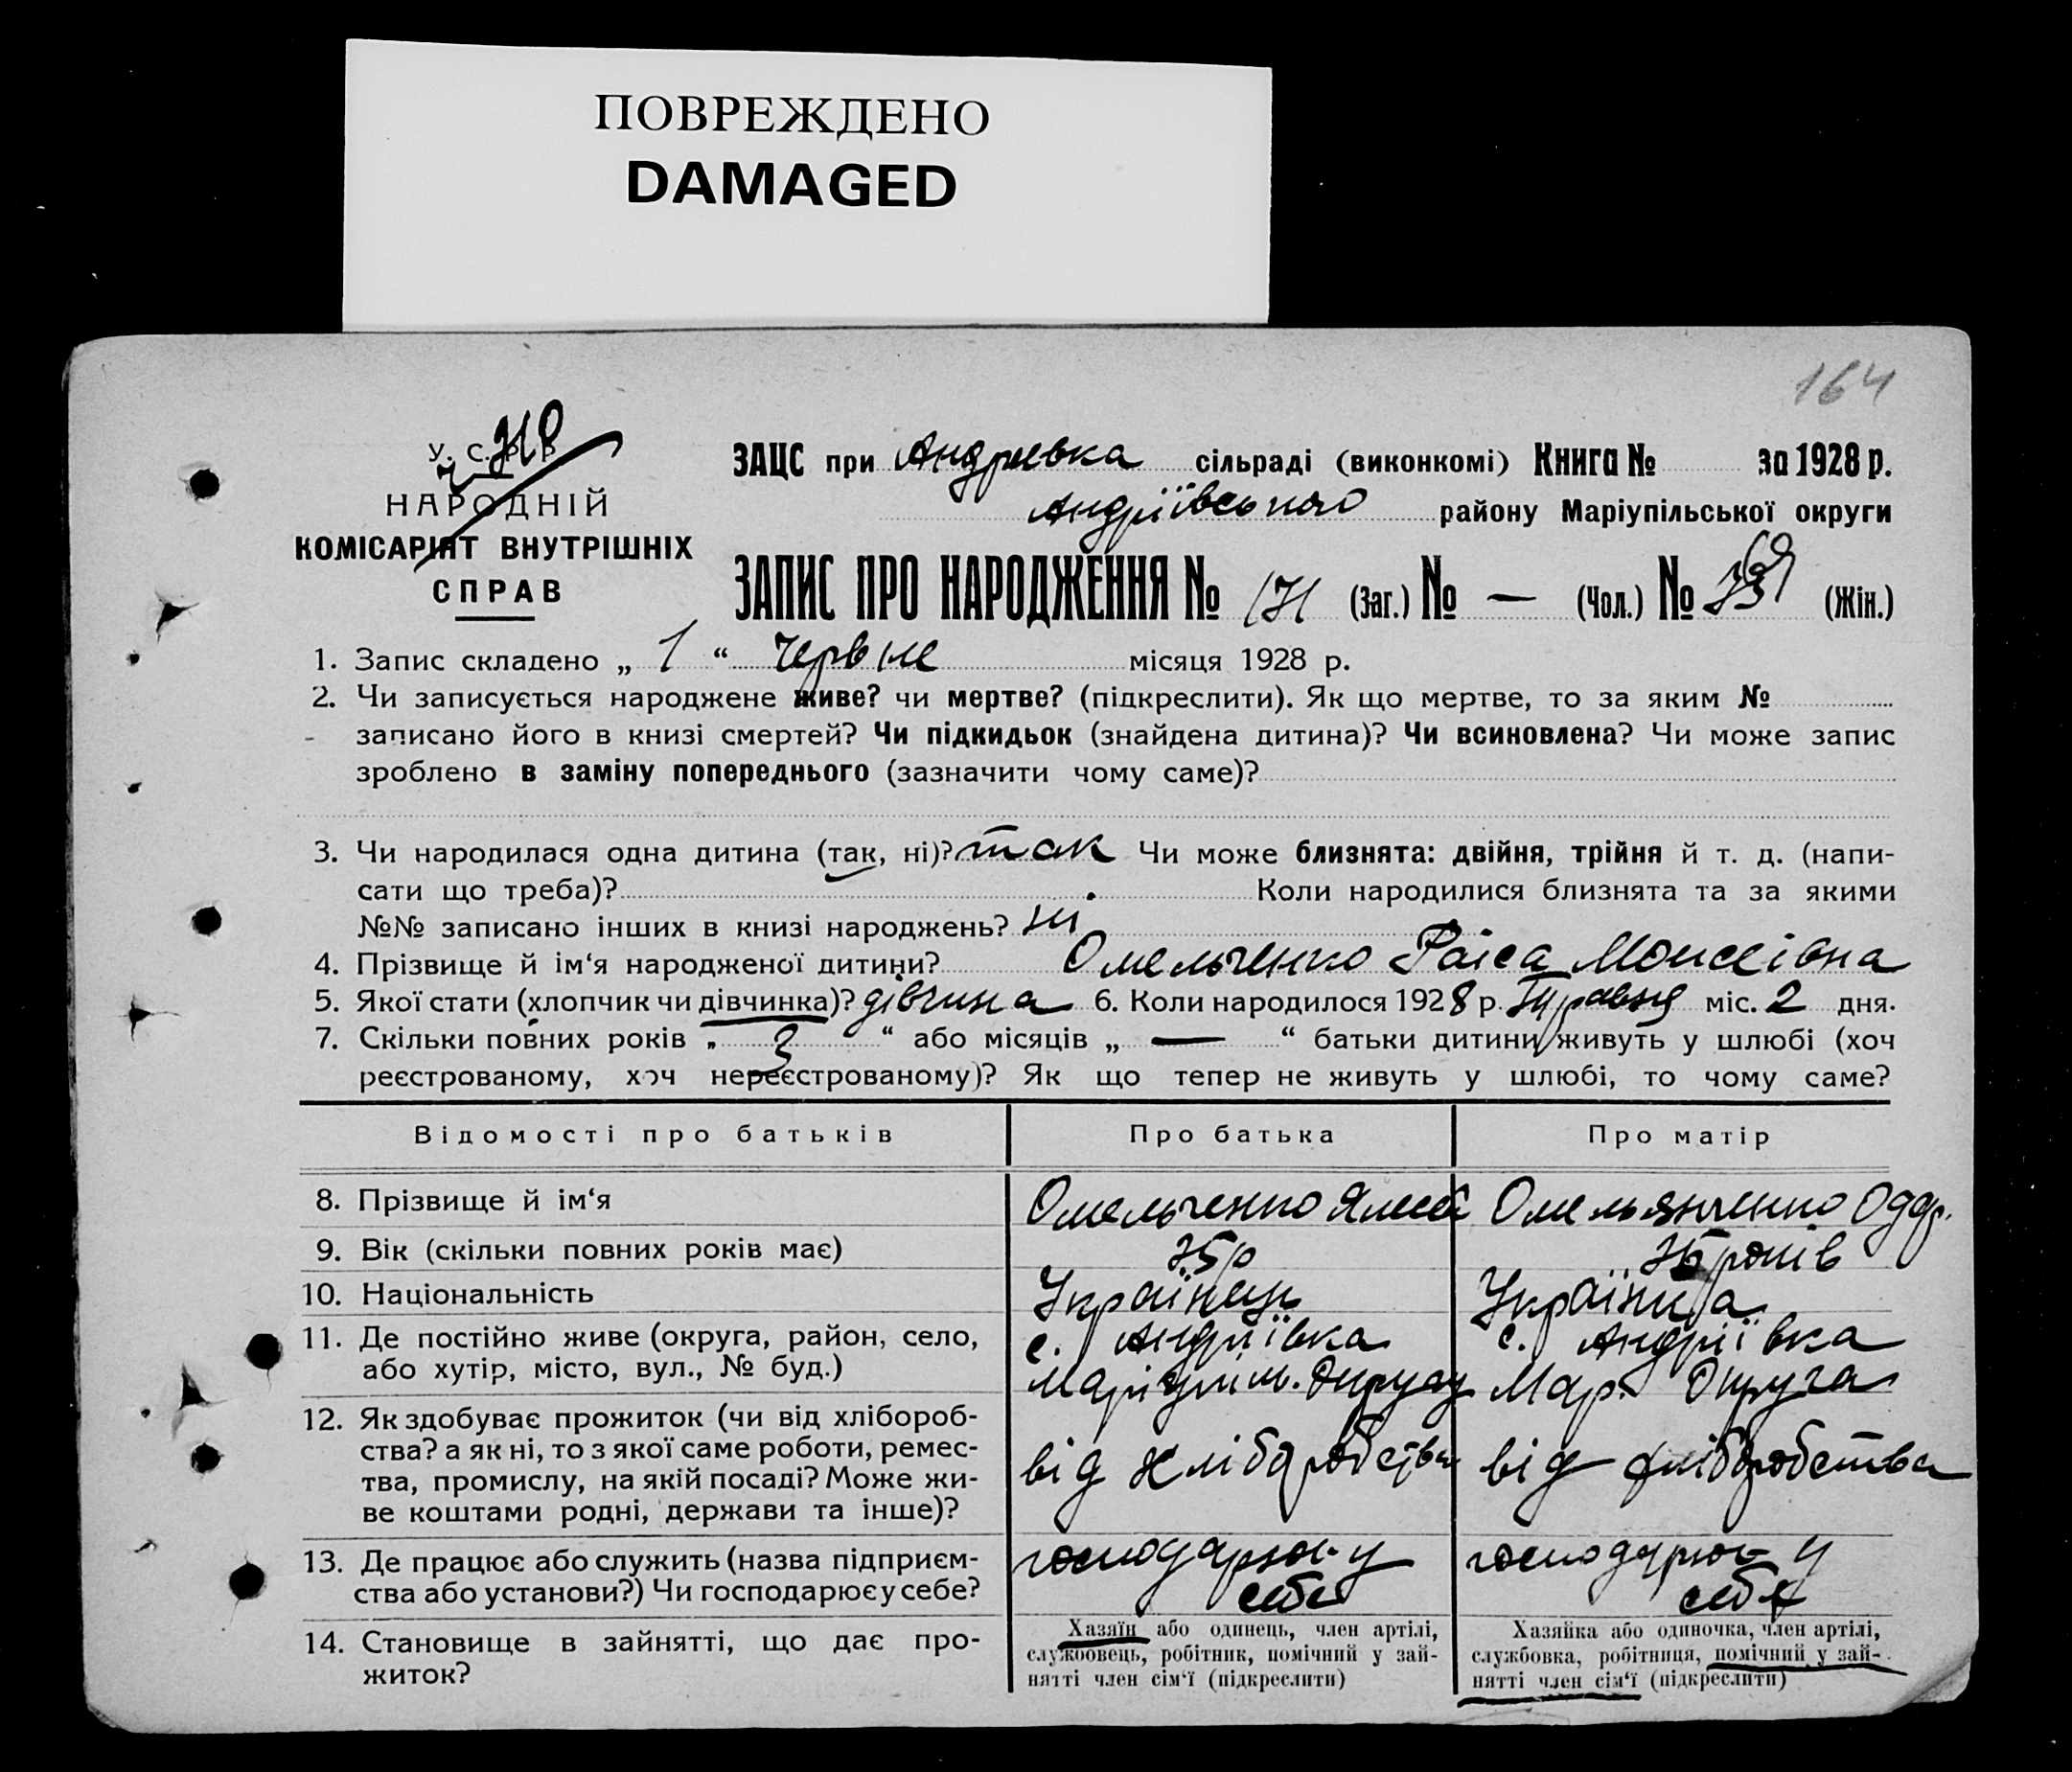 ПОВРЕЖДЕНО
DAMAGED
164
У. С. Р. Р.
НАРОДНІЙ
КОМІСАРІЯТ ВНУТРІШНІХ
СПРАВ
ЗАЦС при Андреевка сільраді (виконкомі) Книга № за 1928 р.
Андріївського району Маріупільської округи
ЗАПИС ПРО НАРОДЖЕННЯ № 171 (Заг.) № — (Чол.) № (Жін.)
1. Запис складено „ 1 “ червне місяця 1928 р.
2. Чи записується народжене живе? чи мертве? (підкреслити). Як що мертве, то за яким №
записано його в книзі смертей? Чи підкидьок (знайдена дитина)? Чи всиновлена? Чи може запис
зроблено в заміну попереднього (зазначити чому саме)?
3. Чи народилася одна дитина (так, ні)? так Чи може близнята: двійня, трійня й т. д. (напи-
сати що треба)? Коли народилися близнята та за якими
№№ записано інших в книзі народжень? ні
4. Прізвище й ім‘я народженої дитини? Омельченко Раіса Моисеівна
5. Якої стати (хлопчик чи дівчинка)? дівчина 6. Коли народилося 1928 р. Травня міс. 2 дня.
7. Скільки повних років „ 3 “ або місяців „ — “ батьки дитини живуть у шлюбі (хоч
реєстрованому, хоч нереєстрованому)? Як що тепер не живуть у шлюбі, то чому саме?
Відомості про батьків Про батька Про матір
8. Прізвище й ім‘я Омельченко Омельянченко
9. Вік (скільки повних років має) років
10. Національність Українець Українка
11. Де постійно живе (округа, район, село, с. Андріївка с. Андріївка
або хутір, місто, вул., № буд.) Маріупіль. Округу Мар. Округа
12. Як здобуває прожиток (чи від хлібороб-
ства? а як ні, то з якої саме роботи, ремес- від хліборобства від хліборобства
тва, промислу, на якій посаді? Може жи-
ве коштами родні, держави та інше)?
13. Де працює або служить (назва підприєм- господарює у господарює у
ства або установи?) Чи господарює у себе? себе себе
14. Становище в зайнятті, що дає про- Хазяїн або одинець, член артілі, Хазяйка або одиночка, член артілі,
житок? службовець, робітник, помічний у зай- службовка, робітниця, помічний у зай-
нятті член сім‘ї (підкреслити) нятті член сім‘ї (підкреслити)